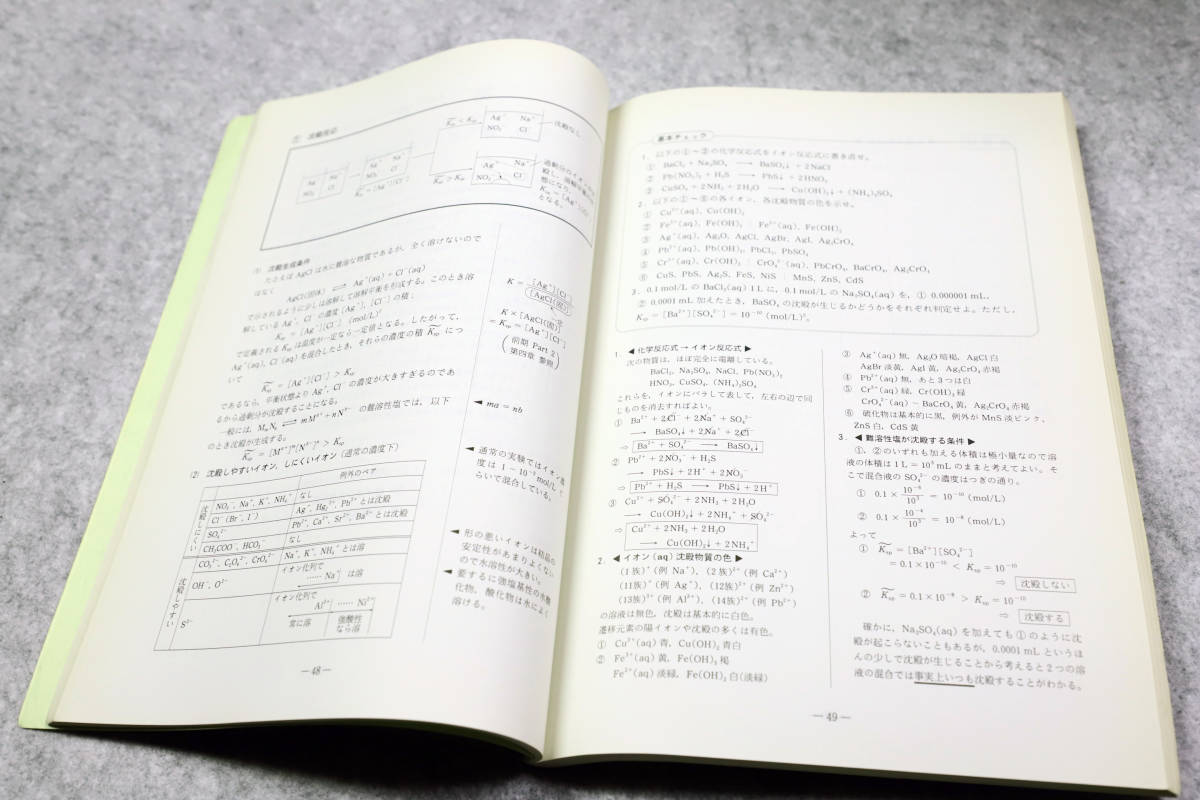 ① 沈殿反応
K̃sp < Ksp
Ag⁺ Na⁺
NO₃⁻ Cl⁻
沈殿なし
K̃sp > Ksp
Ag⁺ Na⁺
NO₃⁻ Cl⁻
となる。
(1) 沈殿生成条件
たとえば AgCl は水に難溶な物質であるが，全く溶けないので
はなく
AgCl(固体) ⇄ Ag⁺(aq) + Cl⁻(aq)
で示されるように少しは溶解して溶解平衡を形成する。このとき溶
解している Ag⁺，Cl⁻ の濃度〔Ag⁺〕，〔Cl⁻〕の積：
Ksp = 〔Ag⁺〕〔Cl⁻〕 (mol/L)²
で定義される Ksp は温度が一定なら一定値となる。したがって，
Ag⁺(aq)，Cl⁻(aq) を混合したとき，それらの濃度の積 K̃sp につ
いて
K̃sp = 〔Ag⁺〕〔Cl⁻〕 > Ksp
であるなら，平衡状態より Ag⁺，Cl⁻ の濃度が大きすぎるのであ
るから過剰分が沈殿することになる。
一般には，MmNn ⇄ mMᵃ⁺ + nNᵇ⁻ の難溶性塩では，以下
のとき沈殿が生成する。
K̃sp = 〔Mᵃ⁺〕ᵐ〔Nᵇ⁻〕ⁿ > Ksp
K = 〔Ag⁺〕〔Cl⁻〕/〔AgCl(固)〕
K × 〔AgCl(固)〕
= Ksp = 〔Ag⁺〕〔Cl⁻〕
(前期 Part 2
第四章 参照)
◀ ma = nb
② 沈殿しやすいイオン，しにくいイオン (通常の濃度下)
例外のペア
沈殿しにくい
NO₃⁻，Na⁺，K⁺，NH₄⁺ なし
Cl⁻ (Br⁻，I⁻) Ag⁺，Hg₂²⁺，Pb²⁺ とは沈殿
SO₄²⁻ Pb²⁺，Ca²⁺，Sr²⁺，Ba²⁺ とは沈殿
CH₃COO⁻，HCO₃⁻ なし
沈殿しやすい
CO₃²⁻，C₂O₄²⁻，CrO₄²⁻ Na⁺，K⁺，NH₄⁺ とは溶
OH⁻，O²⁻ イオン化列で
…… Na⁺ は溶
S²⁻ イオン化列で
Al³⁺ …… Ni²⁺
常に溶 強酸性
なら溶
◀ 通常の実験ではイオン濃
度は 1～10⁻³ mol/L ぐ
らいで混合している。
◀ 形の悪いイオンは結晶の
安定性があまりよくない
ので水溶性が大きい。
◀ 要するに強塩基性の水酸
化物，酸化物は水によく
溶ける。
— 48 —
基本チェック
1．以下の①～③の化学反応式をイオン反応式に書き直せ。
① BaCl₂ + Na₂SO₄ ⟶ BaSO₄↓ + 2NaCl
② Pb(NO₃)₂ + H₂S ⟶ PbS↓ + 2HNO₃
③ CuSO₄ + 2NH₃ + 2H₂O ⟶ Cu(OH)₂↓ + (NH₄)₂SO₄
2．以下の①～⑥の各イオン，各沈殿物質の色を示せ。
① Cu²⁺(aq)，Cu(OH)₂
② Fe³⁺(aq)，Fe(OH)₃ ： Fe²⁺(aq)，Fe(OH)₂
③ Ag⁺(aq)，Ag₂O，AgCl，AgBr，AgI，Ag₂CrO₄
④ Pb²⁺(aq)，Pb(OH)₂，PbCl₂，PbSO₄
⑤ Cr³⁺(aq)，Cr(OH)₃ ： CrO₄²⁻(aq)，PbCrO₄，BaCrO₄，Ag₂CrO₄
⑥ CuS，PbS，Ag₂S，FeS，NiS ： MnS，ZnS，CdS
3．0.1 mol/L の BaCl₂(aq) 1 L に，0.1 mol/L の Na₂SO₄(aq) を，① 0.000001 mL，
② 0.0001 mL 加えたとき，BaSO₄ の沈殿が生じるかどうかをそれぞれ判定せよ。ただし，
Ksp = 〔Ba²⁺〕〔SO₄²⁻〕 = 10⁻¹⁰ (mol/L)²。
1．◀ 化学反応式→イオン反応式 ▶
次の物質は，ほぼ完全に電離している。
BaCl₂，Na₂SO₄，NaCl，Pb(NO₃)₂
HNO₃，CuSO₄，(NH₄)₂SO₄
これらを，イオンにバラして表して，左右の辺で同
じものを消去すればよい。
① Ba²⁺ + 2Cl⁻ + 2Na⁺ + SO₄²⁻
⟶ BaSO₄↓ + 2Na⁺ + 2Cl⁻
⇒ Ba²⁺ + SO₄²⁻ ⟶ BaSO₄↓
② Pb²⁺ + 2NO₃⁻ + H₂S
⟶ PbS↓ + 2H⁺ + 2NO₃⁻
⇒ Pb²⁺ + H₂S ⟶ PbS↓ + 2H⁺
③ Cu²⁺ + SO₄²⁻ + 2NH₃ + 2H₂O
⟶ Cu(OH)₂↓ + 2NH₄⁺ + SO₄²⁻
⇒ Cu²⁺ + 2NH₃ + 2H₂O
⟶ Cu(OH)₂↓ + 2NH₄⁺
2．◀ イオン(aq) 沈殿物質の色 ▶
(1族)⁺ (例 Na⁺)，(2族)²⁺ (例 Ca²⁺)
(11族)⁺ (例 Ag⁺)，(12族)²⁺ (例 Zn²⁺)
(13族)³⁺ (例 Al³⁺)，(14族)²⁺ (例 Pb²⁺)
の溶液は無色，沈殿は基本的に白色。
遷移元素の陽イオンや沈殿の多くは有色。
① Cu²⁺(aq) 青，Cu(OH)₂ 青白
② Fe³⁺(aq) 黄，Fe(OH)₃ 褐
Fe²⁺(aq) 淡緑，Fe(OH)₂ 白(淡緑)
③ Ag⁺(aq) 無，Ag₂O 暗褐，AgCl 白
AgBr 淡黄，AgI 黄，Ag₂CrO₄ 赤褐
④ Pb²⁺(aq) 無，あと3つは白
⑤ Cr³⁺(aq) 緑，Cr(OH)₃ 緑
CrO₄²⁻(aq)～BaCrO₄ 黄，Ag₂CrO₄ 赤褐
⑥ 硫化物は基本的に黒，例外が MnS 淡ピンク，
ZnS 白，CdS 黄
3．◀ 難溶性塩が沈殿する条件 ▶
①，②のいずれも加える体積は極小量なので溶
液の体積は 1 L = 10³ mL のままと考えてよい。そ
こで混合液の SO₄²⁻ の濃度はつぎの通り。
① 0.1 × 10⁻⁶/10³ = 10⁻¹⁰ (mol/L)
② 0.1 × 10⁻⁴/10³ = 10⁻⁸ (mol/L)
よって
① K̃sp = 〔Ba²⁺〕〔SO₄²⁻〕
= 0.1 × 10⁻¹⁰ < Ksp = 10⁻¹⁰
⇒ 沈殿しない
② K̃sp = 0.1 × 10⁻⁸ > Ksp = 10⁻¹⁰
⇒ 沈殿する
確かに，Na₂SO₄(aq) を加えても①のように沈
殿が起こらないこともあるが，0.0001 mL というほ
んの少しで沈殿が生じることから考えると2つの溶
液の混合では事実上いつも沈殿することがわかる。
— 49 —